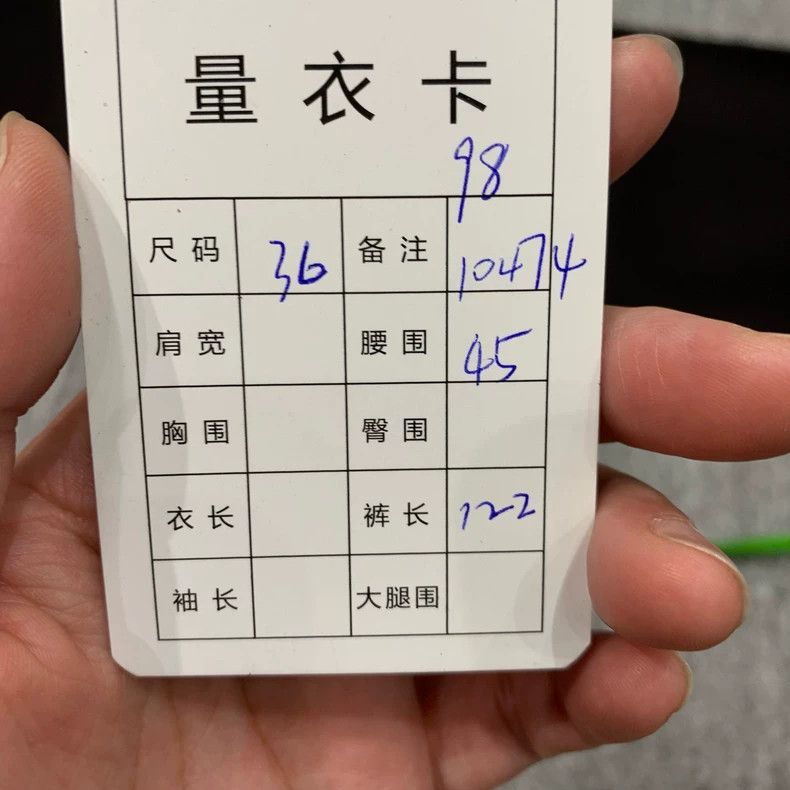 量衣卡
98
尺码 36 备注 10474
肩宽 腰围 45
胸围 臀围
衣长 裤长 122
袖长 大腿围